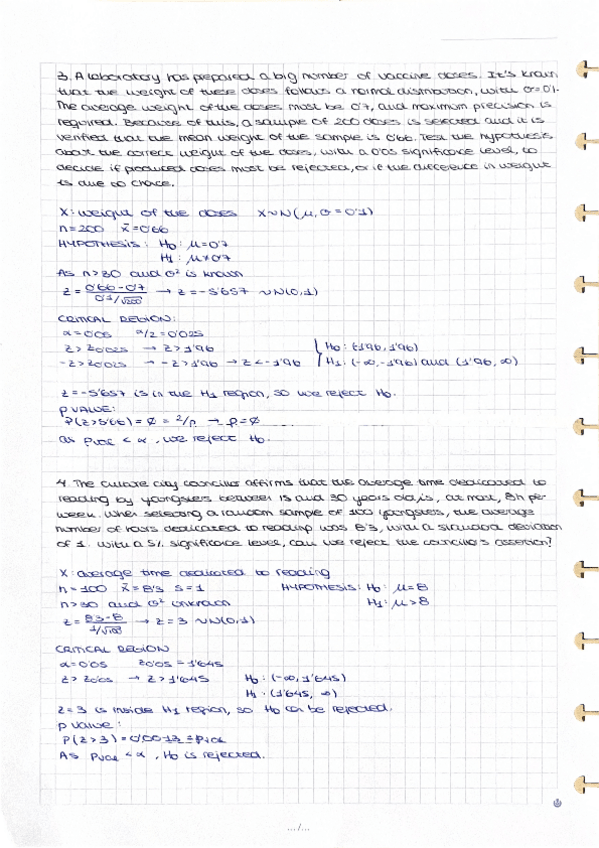 3. A laboratory has prepared a big number of vaccine doses. It's known
that the weight of these doses follows a normal distribution, with σ=0'1.
The average weight of the doses must be 0'7, and maximum precision is
required. Because of this, a sample of 200 doses is selected and it is
verified that the mean weight of the sample is 0'66. Test the hypothesis
about the correct weight of the doses, with a 0'05 significance level, to
decide if produced doses must be rejected, or if the difference in weight
is due to chance.
X: weight of the doses X~N(μ, σ=0'1)
n=200 x̄=0'66
HYPOTHESIS: H₀: μ=0'7
H₁: μ≠0'7
As n>30 and σ² is known
z = (0'66-0'7)/(0'1/√200) → z=-5'657 ~N(0,1)
CRITICAL REGION:
α=0'05 α/2=0'025
z>z0'025 → z>1'96 H₀: (-1'96, 1'96)
-z>z0'025 → -z>1'96 → z<-1'96 H₁: (-∞, -1'96) and (1'96, ∞)
z=-5'657 is in the H₁ region, so we reject H₀.
p VALUE:
P(z>5'66)=∅ = 2/p → p=∅
as Pval < α, we reject H₀.
4. The culture city councillor affirms that the average time dedicated to
reading by youngsters between 15 and 30 years old, is, at most, 8h per
week. When selecting a random sample of 100 youngsters, the average
number of hours dedicated to reading was 8'3, with a standard deviation
of 1. With a 5% significance level, can we reject the councillor's assertion?
X: average time dedicated to reading
n=100 x̄=8'3 s=1 HYPOTHESIS: H₀: μ=8
n>30 and σ² unknown H₁: μ>8
z = (8'3-8)/(1/√100) → z=3 ~N(0,1)
CRITICAL REGION
α=0'05 z0'05=1'645
z>z0'05 → z>1'645 H₀: (-∞, 1'645)
H₁: (1'645, ∞)
z=3 is inside H₁ region, so H₀ can be rejected.
p value:
P(z>3)=0'0013=Pval
As Pval<α, H₀ is rejected.
.../...